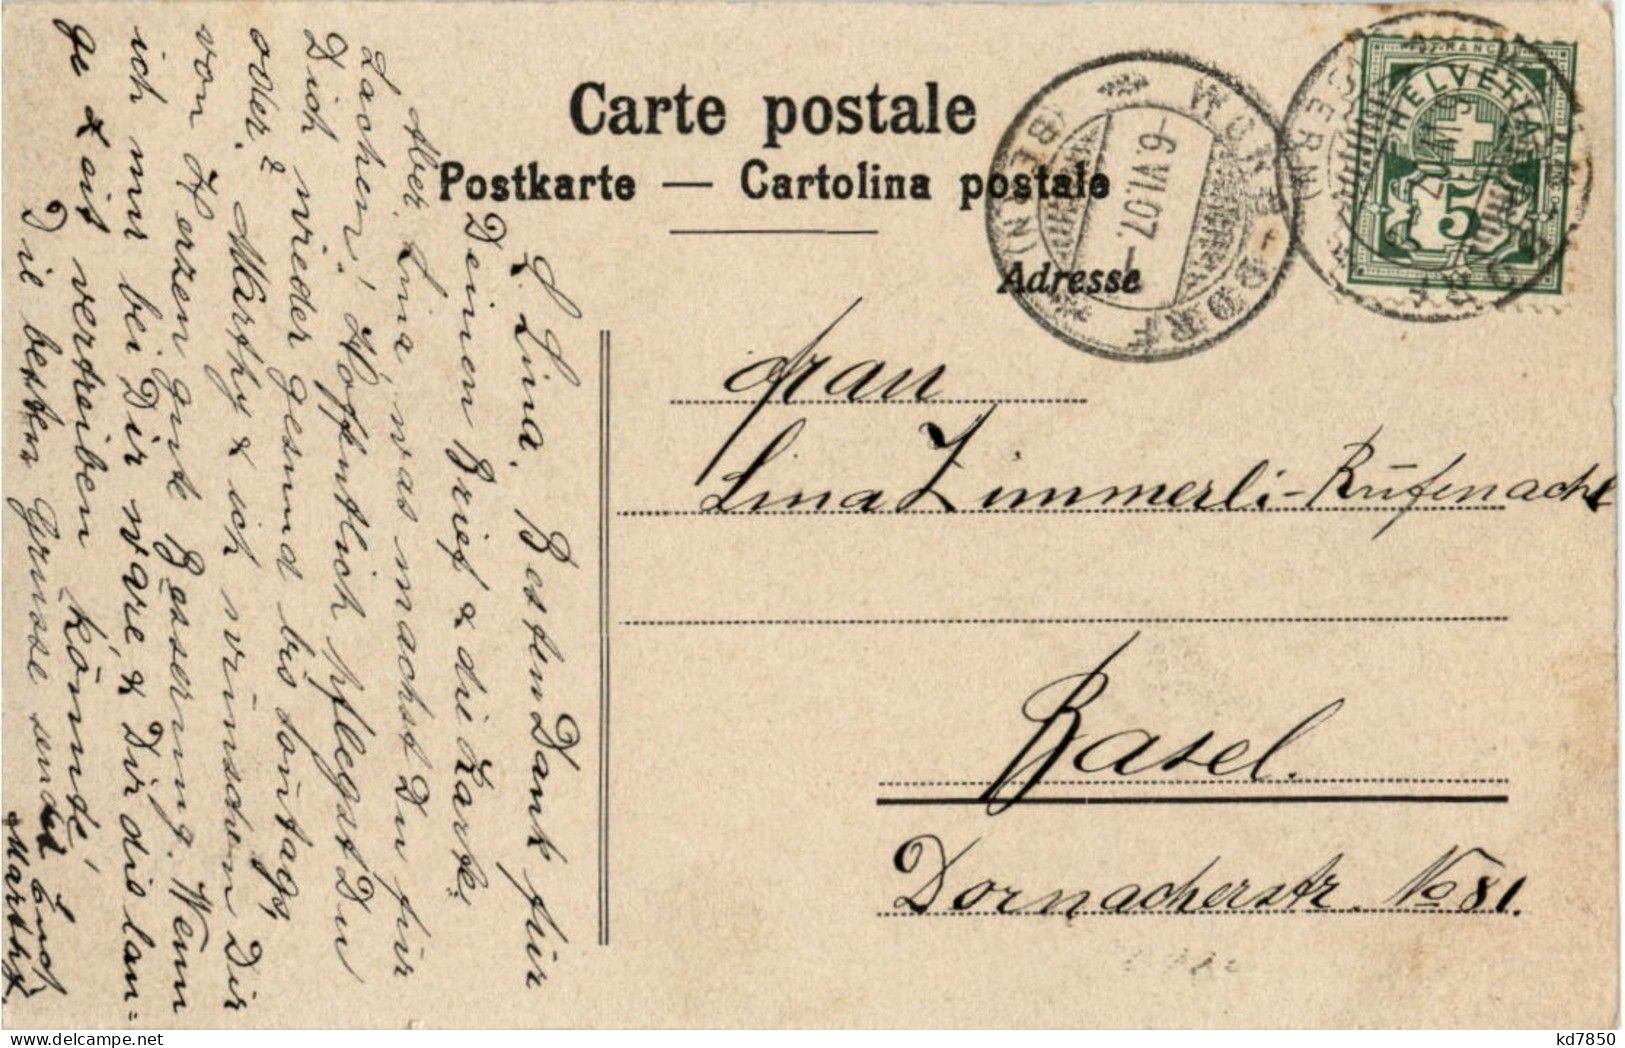 Carte postale
Postkarte — Cartolina postale
Adresse
WORB
(BERN)
-6.VI.07.-
HELVETIA
FRANCO
5
Frau
Lina Zimmerli-Rüfenacht
Basel.
Dornacherstr. No 81.
L. Lina. Besten Dank für
Deinen Brief & die Karte.
Aber, Lina, was machst Du für
Sachen! Hoffentlich pflegst Du
Dich wieder gesund bis sontags,
oder? Marthy & ich wünschen Dir
von Herzen gute Besserung. Wenn
ich nur bei Dir wäre, & Dir die lan=
ge Zeit vertreiben könnte!
Die besten Grüsse sendet Euch
Marthy.
kd7850